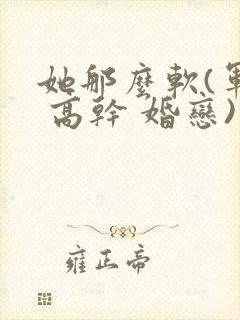 她那麼軟(軍
高幹 婚戀)
雍正帝